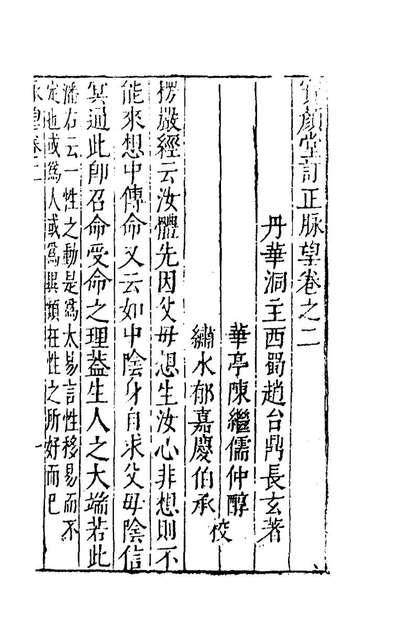 寶顏堂訂正脉望卷之二
丹華洞主西蜀趙台鼎長玄著
華亭陳繼儒仲醇
繡水郁嘉慶伯承
校
楞嚴經云汝體先因父母想生汝心非想則不
能來想中傳命又云如中陰身自求父母陰信
冥通此即召命受命之理葢生人之大端若此
潘右云一性之動是為太易言性移易而不
定也或為人或為異類在性之所好而已
脉望卷二
一